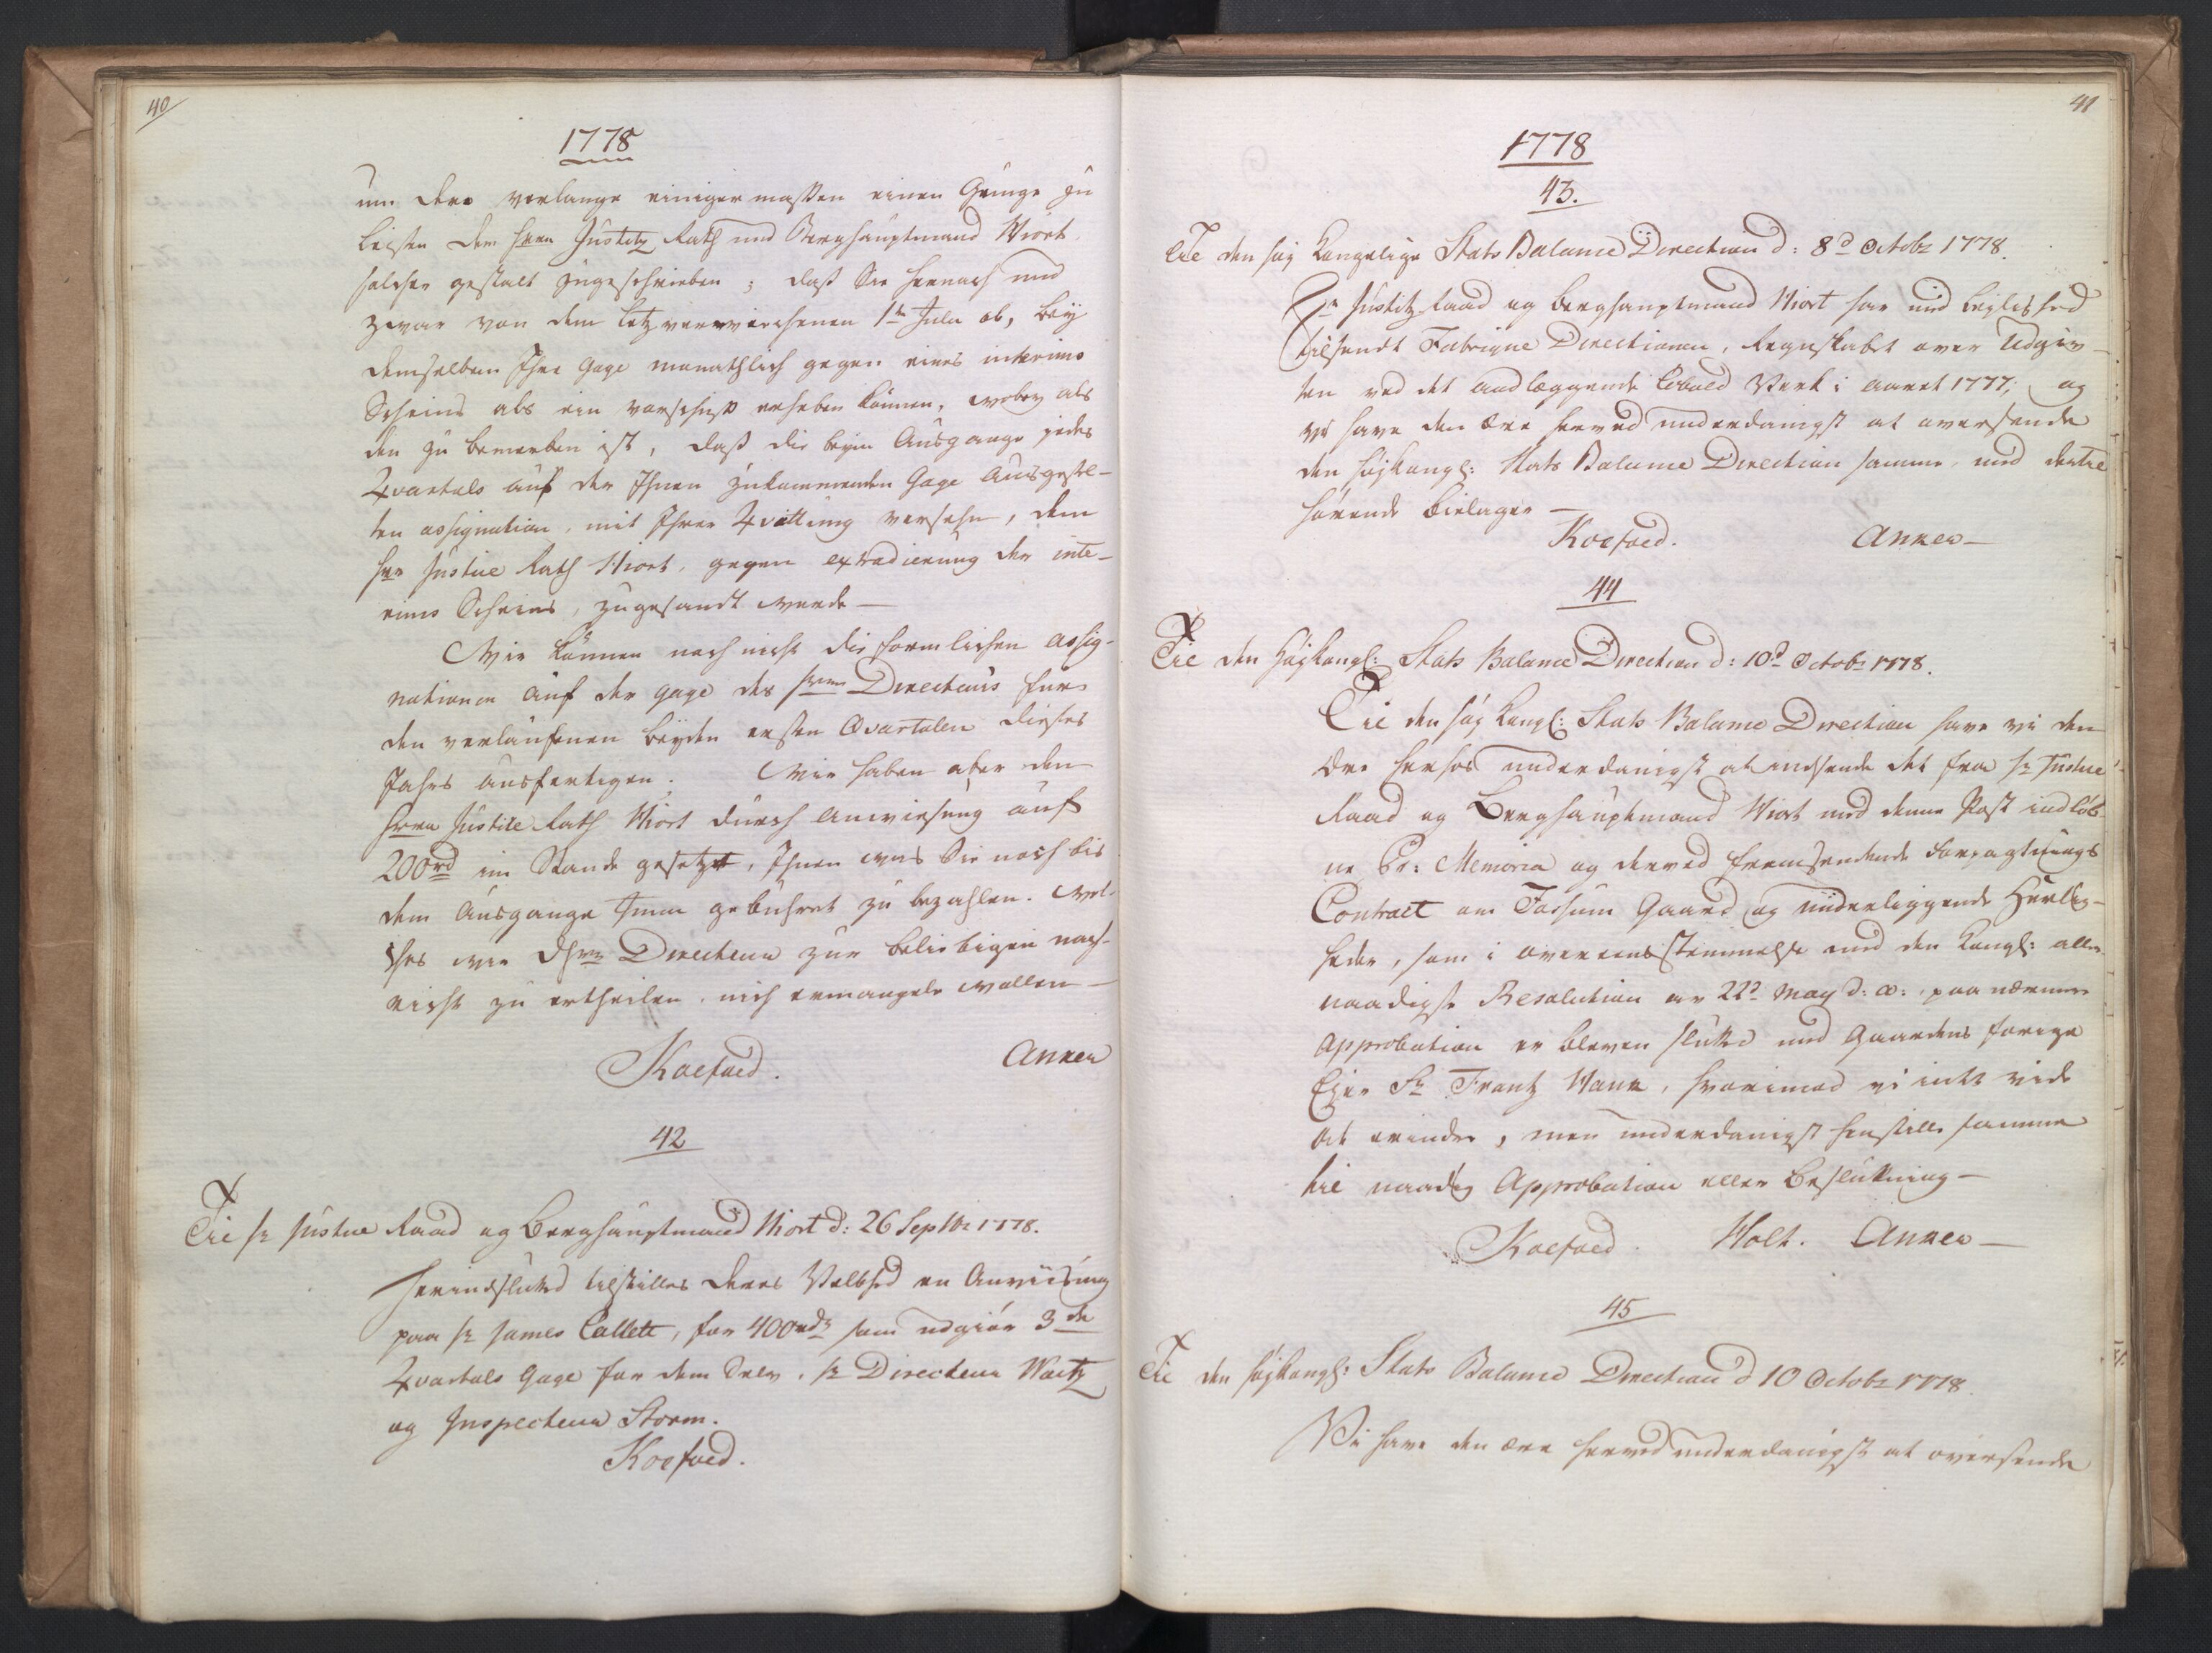 40
1778
um dero verlange einiger maßen einen Genüge zu
leisten dem Herrn Justitz Rath und Berghauptmand Hiort
solcher gestalt zugeschrieben; daß Sie hernach und
zwar von dem letz verwichenen 1te Julii ab, beÿ
demselben Ihre Gage monathlich gegen eines interims
Scheins als ein vorschuß erheben können, wobey als
den zu bemerken ist, daß die beym Ausgange jedes
Qvartals auf der Ihnen zukommenden Gage ausgestel-
ten assignation, mit Ihrer Qvittung versehn, dem
Herr Justice Rath Hiort, gegen extradierung der inte-
rims Scheins, zugesandt werde —
Wir können noch nicht die formlichen assig-
nationen auf der gage des Herrn Directeurs fur
den verlaufenen beyden ersten Qvartalen dieses
Jahrs ausfertigen. Wir haben aber den
Herrn Justice Rath Hiort durch anwiesung auf
200rd im Stande gesetzt, Ihnen was Sie noch bis
dem Ausgange Junii gebühret zu bezahlen. wel-
ches wir Hrn Directeur zur beliebigen nach-
richt zu ertheilen, nich ermangele wollen —
Koefoed. Anker
42
Til Hr Justice Raad og Berghauptmand Hiort d: 26 Septbr 1778.
Herindsluted tilstilles deres Velbhed en Anviisning
paa Hr James Collett, for 400rdr som udgiör 3de
Qvartals Gage for dem Selv, Hr Directeur Waitz
og Inspecteur Storm.
Koefoed.
41
1778
43.
Til den höy Kongelige Stats Balance Direction d: 8d Octobr 1778.
Hr Justitz Raad og Berghauptmand Hiort har med leylighed
tilsendt Fabrique Directionen, Regnskabet over Udgiv-
ten ved det andlæggende Cobold Verk i aaret 1777, og
vi have den Ære herved underdanigst at oversende
den høyKongl: Stats Balance Direction samme, med dertil
hørende bielager —
Koefoed. Anker —
44
Til den HøyKongl: Stats Balance Direction d: 10d Octobr 1778.
Til den høy Kongl: Stats Balance Direction have vi den
Ære herhos underdanigst at indsende det fra Hr Justice
Raad og Berghauptmand Hiort med denne Post indløb-
ne Pr: Memoria og derved fremsendende Forpagtnings
Contract om Fossum Gaard og underliggende Herlig-
heder, som i overeensstemmelse med den Kongl: aller-
naadigste Resolution av 22d May d: a: paa nærmere
Approbation er bleven slutted med Gaardens forrige
Ejer Sr Frantz Hauk, hvorimod vi intet vide
at erindre, men underdanigst henstille samme
til naadig Approbation eller Beslutning —
Koefoed. Holt. Anker —
45
Til den høyKongl: Stats Balance Direction d 10 Octobr 1778.
Vi have den Ære herved underdanigst at oversende